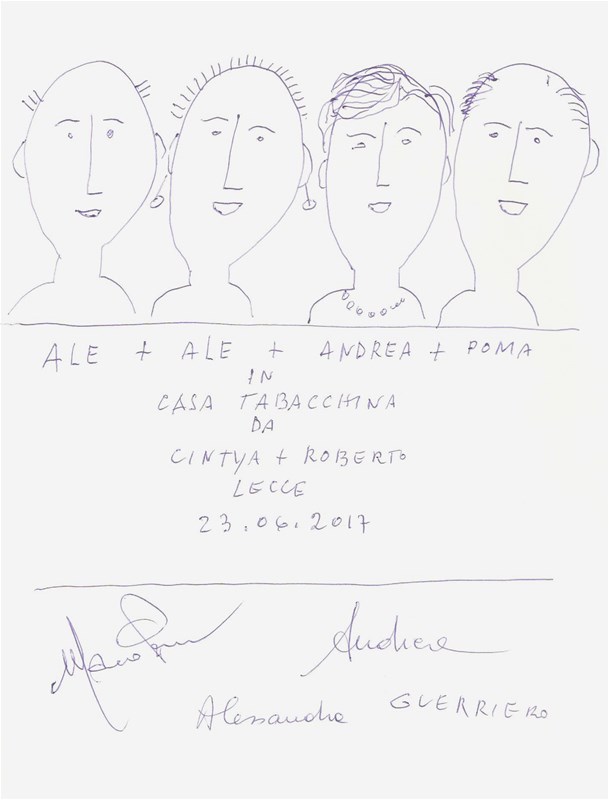 ALE + ALE + ANDREA + POMA
IN
CASA TABACCHINA
DA
CINTYA + ROBERTO
LECCE
23.06.2017
Andrea
Alessandra GUERRIERO